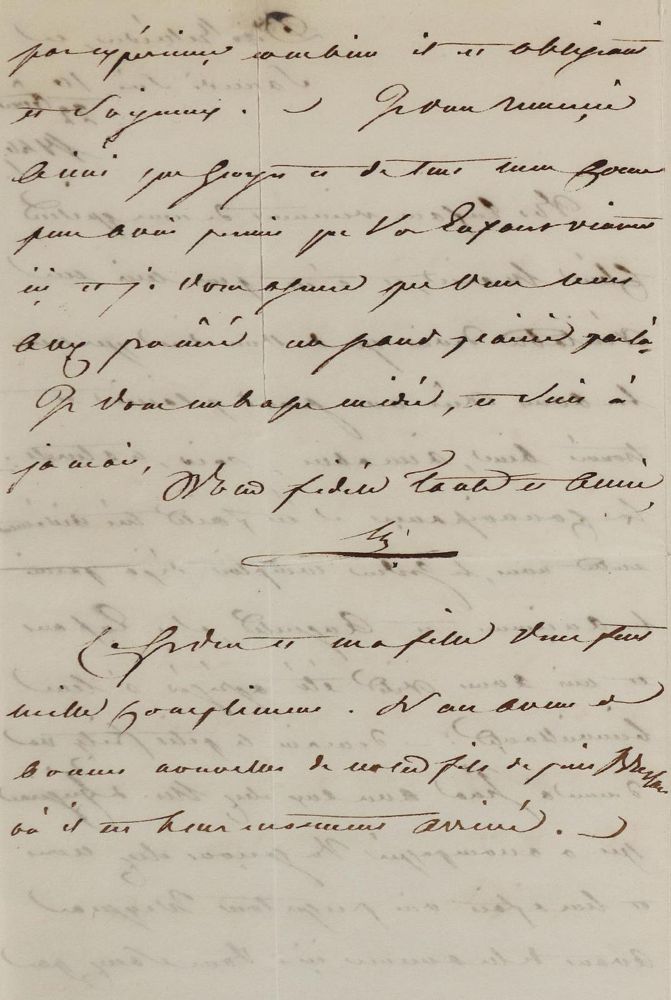 par expérience combien il est obligeant
et soigneux. Je vous remercie
ainsi que Georges et de tout mon coeur
pour avoir permis que vos Enfans viennent
ici et je vous assure que vous nous
avez procuré un grand plaisir par là
Je vous embrasse mille, et suis à
jamais,
Votre fidèle Tante et Amie
et ma fille vous font
mille Complimens. Nous avons de
bonnes nouvelles de notre fils depuis
où il est heureusement arrivé.